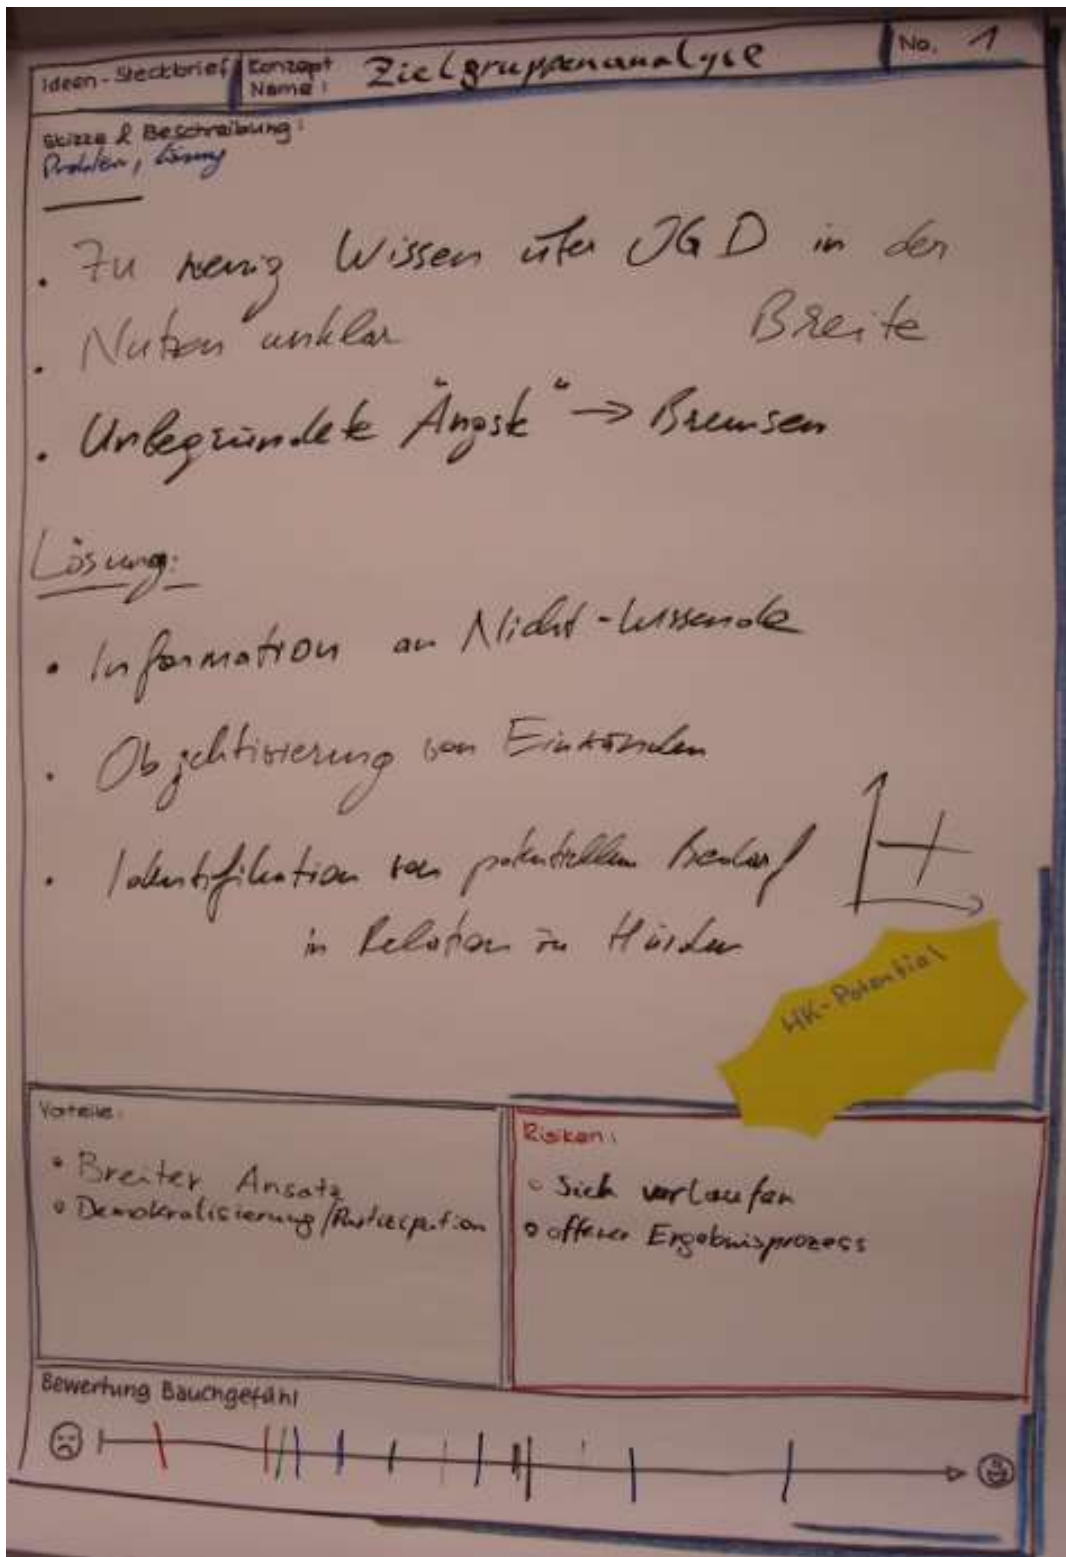 Ideen-Steckbrief
Konzept Name:
Zielgruppenanalyse
No. 1
Skizze & Beschreibung:
Problem, Lösung
• Zu wenig Wissen über JGD in der
Breite
• Nutzen unklar
• Unbegründete "Ängste" → Bremsen
Lösung:
• Information an Nicht-Wissende
• Objektivierung von Einwänden
• Identifikation von potentiellem Bedarf
in Relation zu Hürden
HK-Potential
Vorteile:
• Breiter Ansatz
• Demokratisierung/Partizipation
Risiken:
• Sich verlaufen
• offener Ergebnisprozess
Bewertung Bauchgefühl